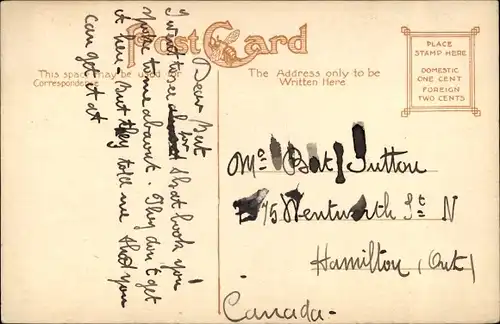 Post Card
This space may be used for
Correspondence
The Address only to be
Written Here
PLACE
STAMP HERE
DOMESTIC
ONE CENT
FOREIGN
TWO CENTS
Dear Bat
I went over for
that book you
spoke to me about. They don't get
it here. But they told me that you
can get it at
Mr Bat Sutton
75 Wentworth St N
Hamilton, (Ont)
Canada-